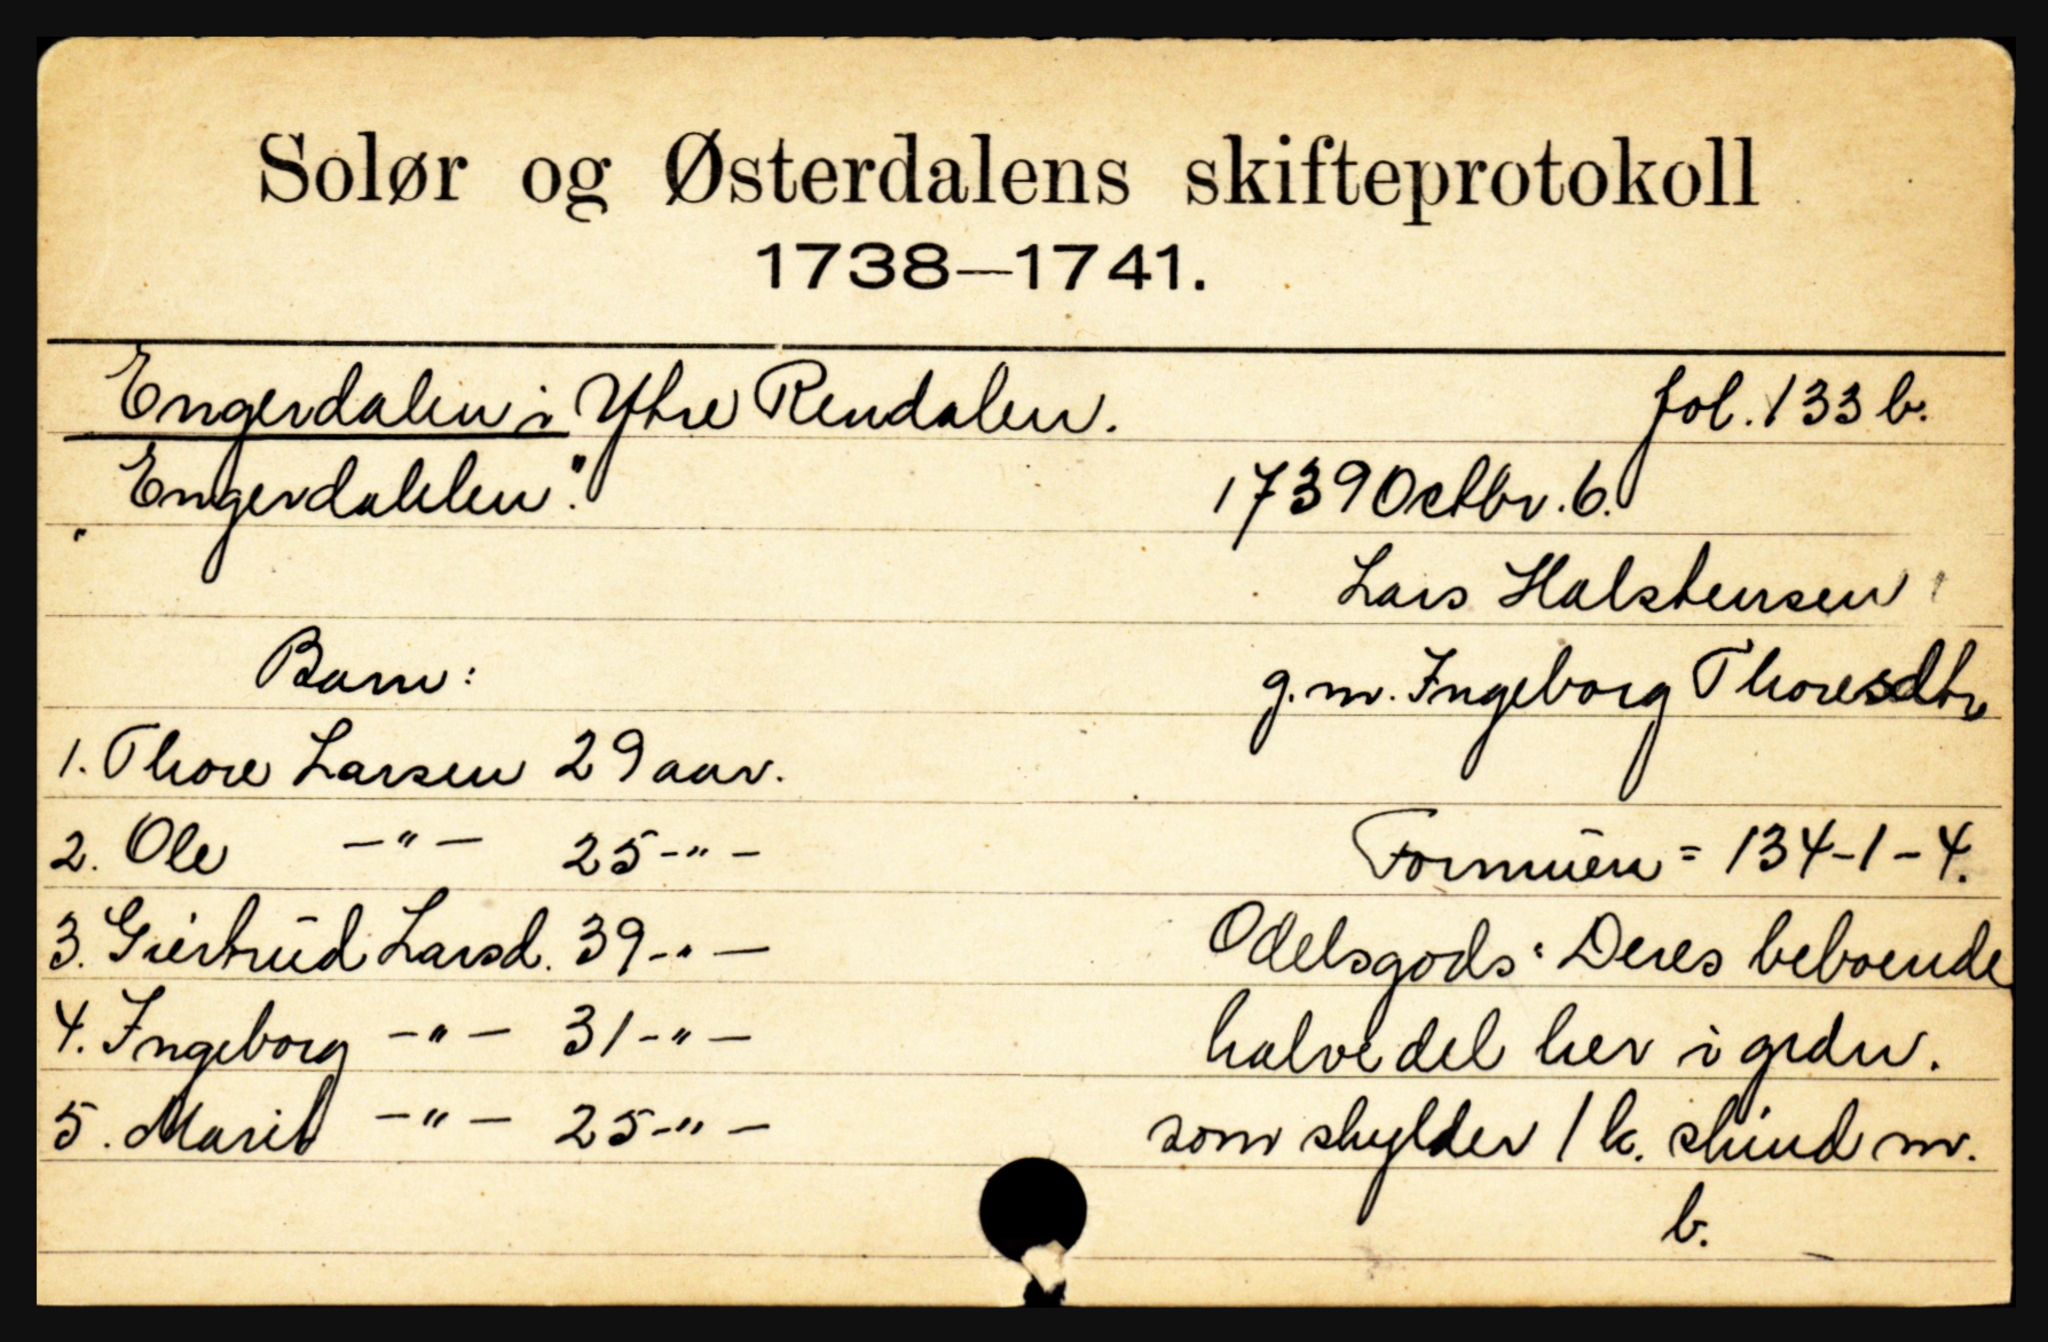 Solør og Østerdalens skifteprotokoll
1738—1741.
Engerdalen i Ytre Rendalen. fol. 133 b.
„Engerdahlen". 1739 Octbr. 6.
Lars Halstensen
Barn: g. m. Ingeborg Thoresdtr
1. Thore Larsen 29 aar.
2. Ole -"- 25 -"- Formúen = 134-1-4.
3. Giertrúd Larsd. 39 -"- Odelsgods: Deres beboende
4. Ingeborg -"- 31 -"- halve del her i grdn.
5. Marit -"- 25 -"- som skylder 1 k. skind m.
b.